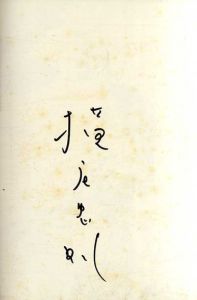 横尾忠則